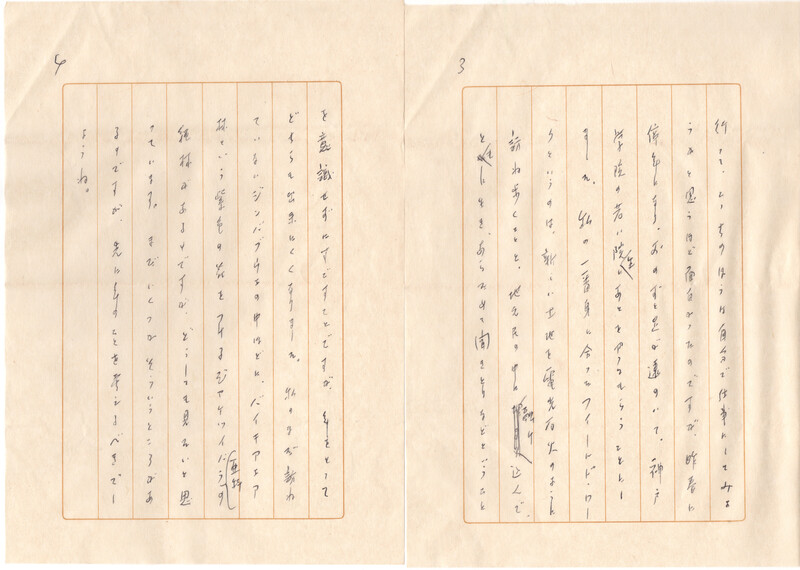 3
行って、そちらのほうは自分で仕事にしてみよ
うかと思うほど面白かったのですが、昨春に
停年になり、おのずと足が遠のいて、神戸
学院の若い院生があとをやるということにし
ました。私の一番身に合ったフィールド・ワー
クというのは、新しい土地を電光石火のように
訪ね歩くことと、地元民の中に融け込んで、
ともに生き、あらためて聞きとりなどということ
4
を意識せずにすごすことですが、年をとって
どちらも出来にくくなりました。私のまだ訪ね
ていないジンバブエの中ほどに、バイキアエア
林という紫色の花をつけるジャケツイバラ亜科の
純林があるのですが、どうしても見たいと思
っています。まだいくつかそういうところがあ
るのですが、先に年のことを考えるべきでし
ょうね。